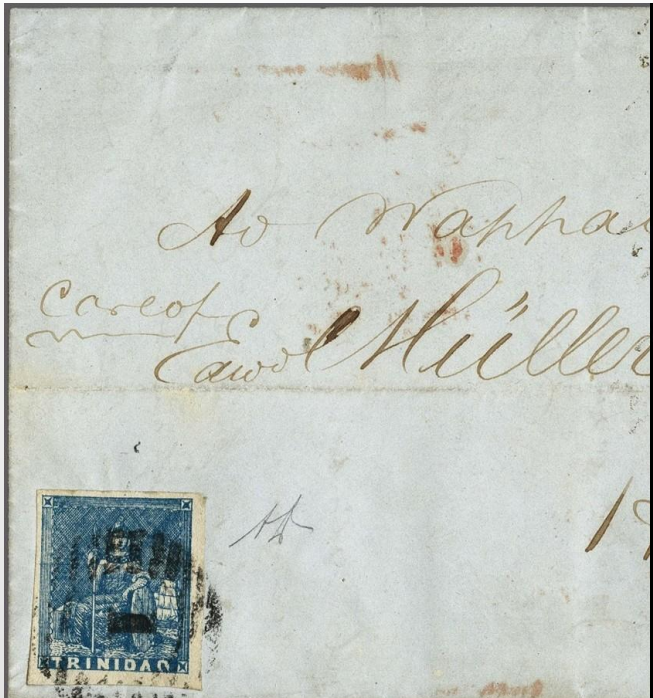 Ad Wappa
care of
Edwd Müller
1
TRINIDAD